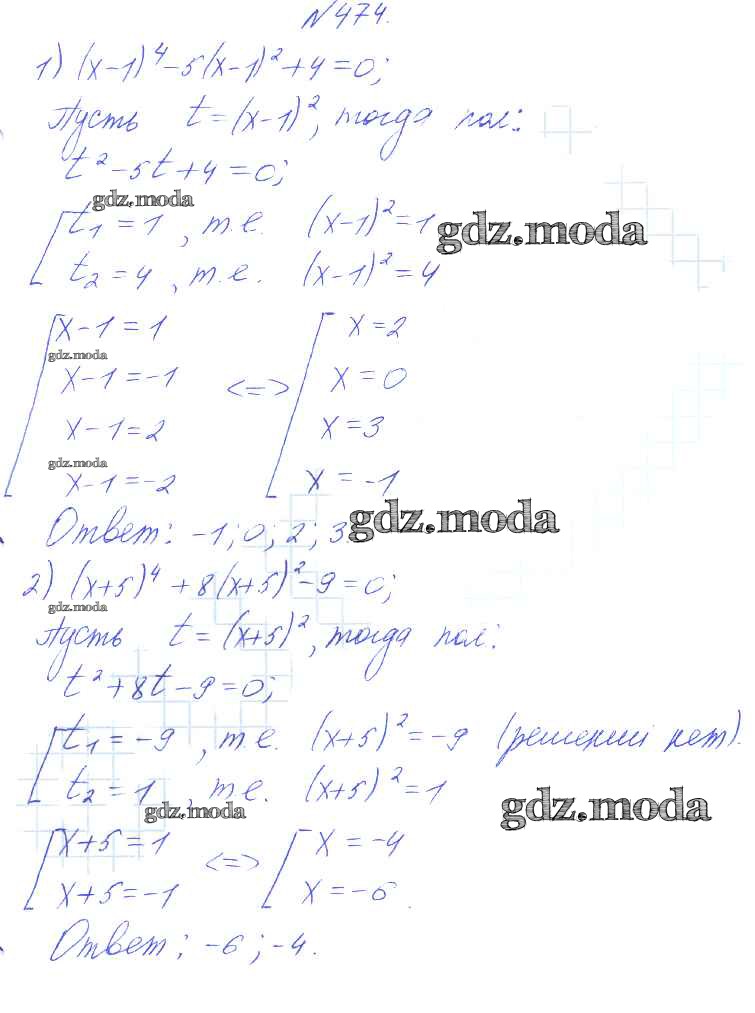 №474.
1) (x-1)⁴-5(x-1)²+4=0;
Пусть t=(x-1)², тогда пол:
t²-5t+4=0;
gdz.moda
[t₁=1, т.е. (x-1)²=1
gdz.moda
t₂=4, т.е. (x-1)²=4
[x-1=1 [x=2
gdz.moda
x-1=-1 <=> x=0
x-1=2 x=3
gdz.moda
x-1=-2 x=-1
Ответ: -1; 0; 2; 3.
gdz.moda
2) (x+5)⁴+8(x+5)²-9=0;
gdz.moda
Пусть t=(x+5)², тогда пол:
t²+8t-9=0;
[t₁=-9, т.е. (x+5)²=-9 (решений нет).
t₂=1, т.е. (x+5)²=1
gdz.moda
gdz.moda
[x+5=1 <=> [x=-4
x+5=-1 x=-6.
Ответ: -6; -4.